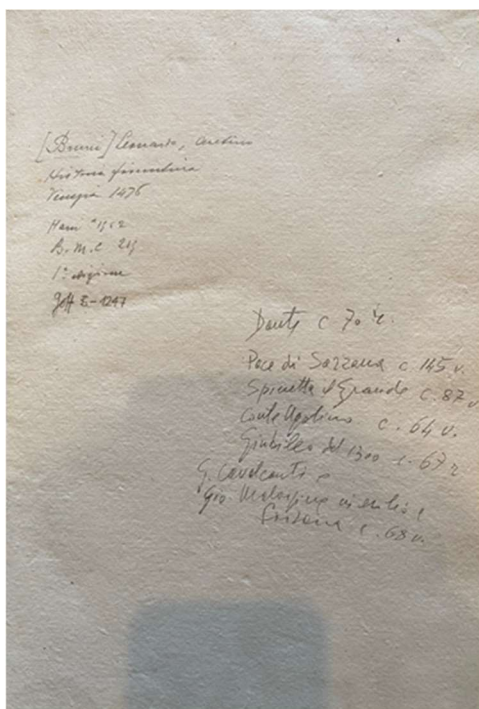 [Bruni] Leonardo, aretino
Historia fiorentina
Venezia 1476
Hain *1562
B.M.C. 215
1ª edizione
Goff B-1247
Dante c 70 r.
Pace di Sarzana c 145 v.
Spinetta il Grande c. 87 v
Conte Ugolino c. 64 v.
Giubileo del 1300 c. 67 r
G. Cavalcanti e
Gio. Malaspina in esilio a
c. 68 v.